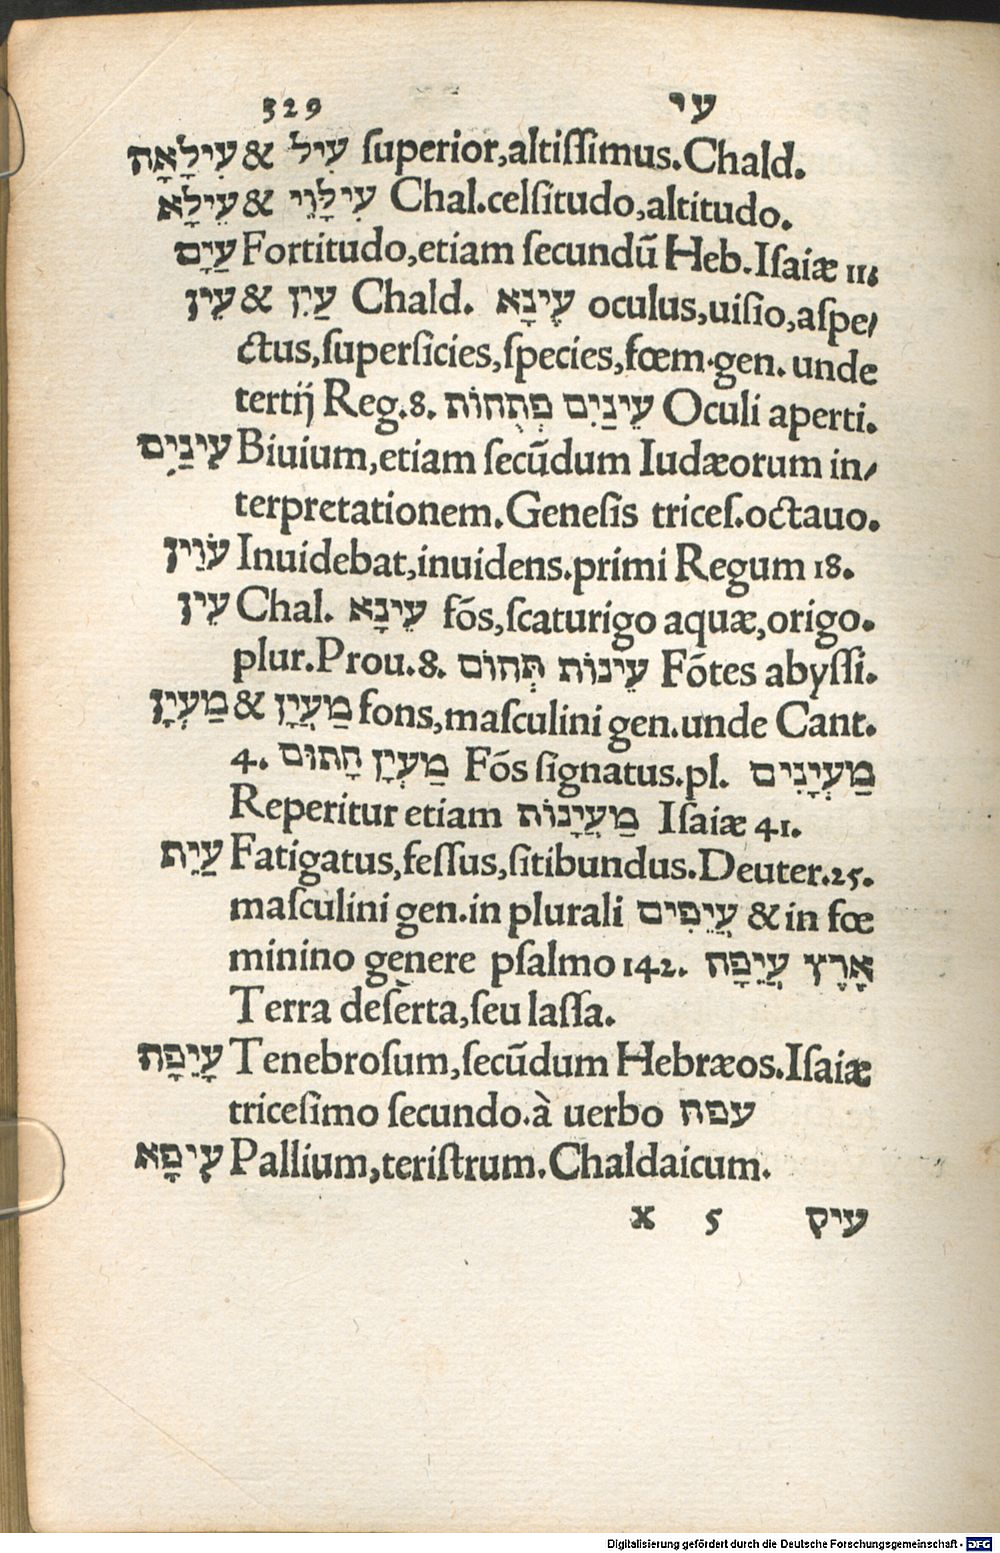 329 עי
עִילָאָה & עִיל ſuperior,altiſſimus.Chald.
עֵילָא & עִילָּוֵי Chal.celſitudo,altitudo.
עַיָם Fortitudo,etiam ſecundũ Heb.Iſaiæ 11.
עֵין & עַיִן Chald. עֶינָא oculus,uiſio,aſpe/
ctus,ſuperficies,ſpecies,fœm.gen. unde
tertij Reg.8. עֵינַיִם פְתֻחוֹת Oculi aperti.
עֵינַיִם Biuium,etiam ſecũdum Iudæorum in/
terpretationem.Geneſis triceſ.octauo.
עֹוֵין Inuidebat,inuidens.primi Regum 18.
עֵין Chal. עֵינָא fõs,ſcaturigo aquæ,origo.
plur.Prou.8. עֵינוֹת תְּהוֹם Fõtes abyſſi.
מַעְיָן & מַעֲיָן fons,maſculini gen.unde Cant.
4. מַעְיָן חָתוּם Fõs ſignatus.pl. מַעְיָנִים
Reperitur etiam מַעֲיָנוֹת Iſaiæ 41.
עַיֵת Fatigatus,feſſus,ſitibundus.Deuter.25.
maſculini gen.in plurali עֲיֵפִים & in fœ
minino genere pſalmo 142. אֶרֶץ עֲיֵפָה
Terra deſerta,ſeu laſſa.
עָיֵפָה Tenebroſum,ſecũdum Hebræos.Iſaiæ
triceſimo ſecundo.à uerbo עפה
עֶיפָא Pallium,teriſtrum.Chaldaicum.
x 5 עיק
Digitalisierung gefördert durch die Deutsche Forschungsgemeinschaft - DFG